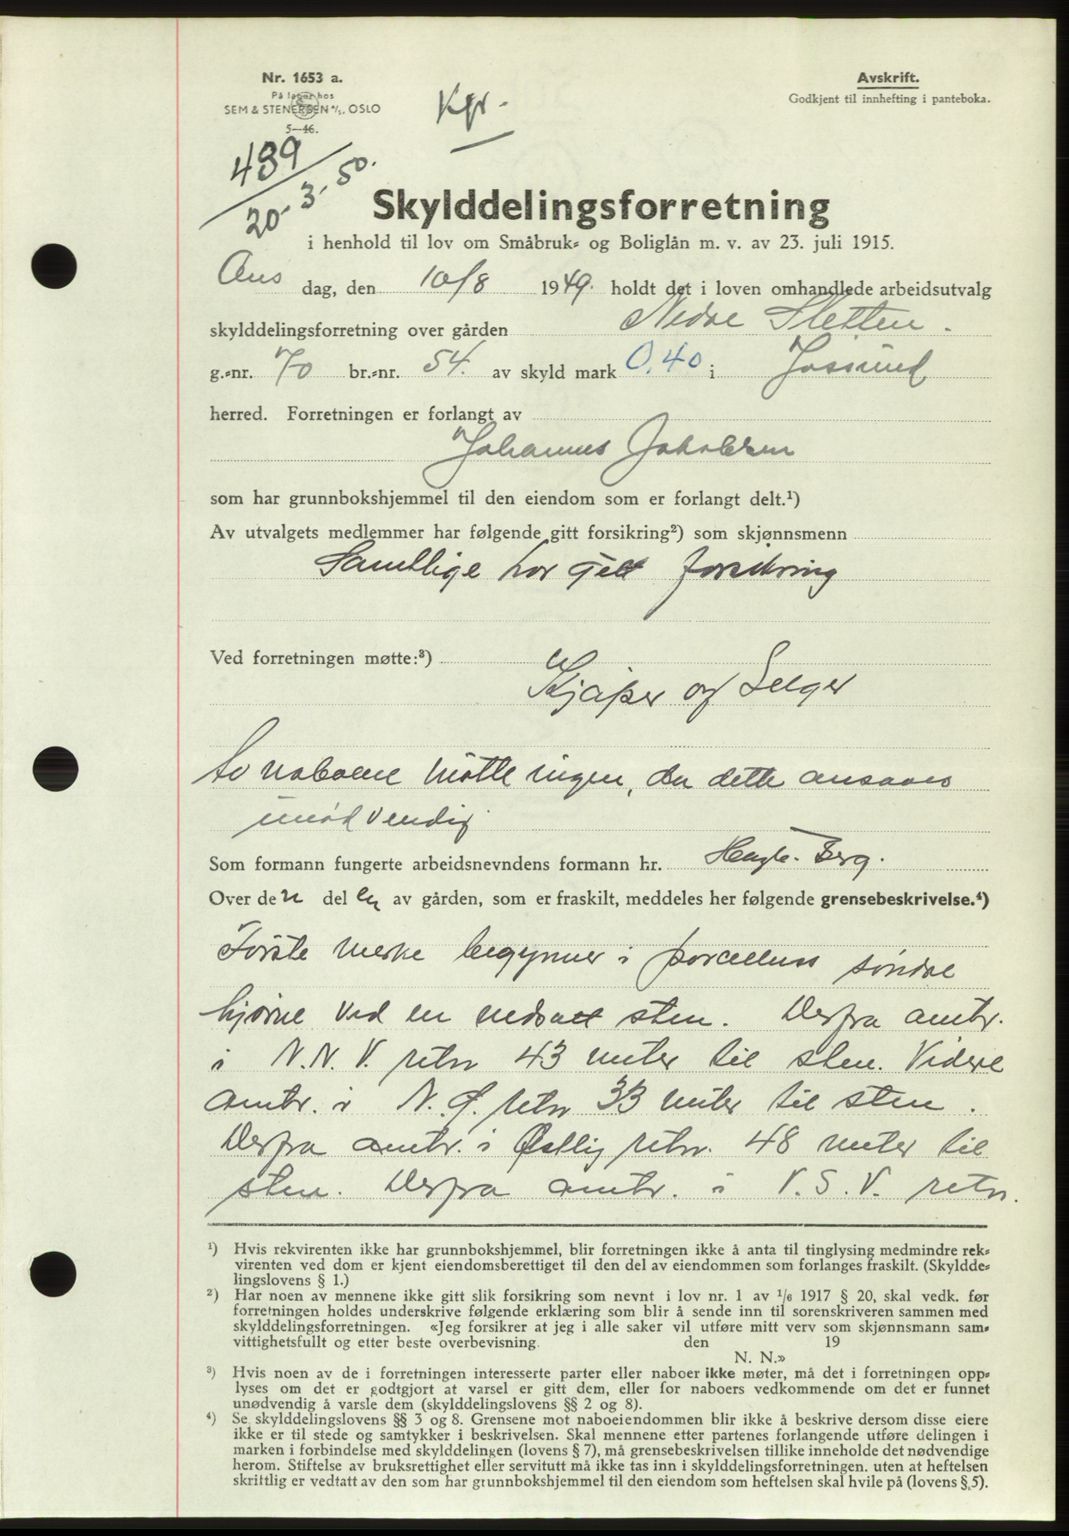 Nr. 1653 a.
På lager hos
SEM & STENERSEN A/S, OSLO
5—46.
Kpr.
Avskrift.
Godkjent til innhefting i panteboka.
489
20-3-50.
Skylddelingsforretning
i henhold til lov om Småbruk- og Boliglån m. v. av 23. juli 1915.
Ons dag, den 10/8 1949. holdt det i loven omhandlede arbeidsutvalg
skylddelingsforretning over gården Nedre Sletten.
g.-nr. 70 br.-nr. 54. av skyld mark 0,40 i Jøssund
herred. Forretningen er forlangt av
Johannes Jakobsen
som har grunnbokshjemmel til den eiendom som er forlangt delt.¹)
Av utvalgets medlemmer har følgende gitt forsikring²) som skjønnsmenn
Samtlige har gitt forsikring
Ved forretningen møtte:³)
Kjøper og Selger
Av naboene møtte ingen, da dette ansaaes
unødvendig
Som formann fungerte arbeidsnevndens formann hr. Berg.
Over den delen av gården, som er fraskilt, meddeles her følgende grensebeskrivelse.⁴)
Første merke begynner i parcellens søndre
hjørne ved en nedsatt sten. Derfra omtr.
i N.N.V. retn 43 meter til sten. Videre
omtr. i N.Ø. retn 33 meter til sten.
Derfra omtr. i Østlig retn. 48 meter til
sten. Derfra omtr. i V.S.V. retn.
¹) Hvis rekvirenten ikke har grunnbokshjemmel, blir forretningen ikke å anta til tinglysing medmindre rek-
virenten ved dom er kjent eiendomsberettiget til den del av eiendommen som forlanges fraskilt. (Skyldde-
lingslovens § 1.)
²) Har noen av mennene ikke gitt slik forsikring som nevnt i lov nr. 1 av 1/6 1917 § 20, skal vedk. før
forretningen holdes underskrive følgende erklæring som blir å sende inn til sorenskriveren sammen med
skylddelingsforretningen. «Jeg forsikrer at jeg i alle saker vil utføre mitt verv som skjønnsmann sam-
vittighetsfullt og etter beste overbevisning. den 19
N. N.»
³) Hvis noen av de i forretningen interesserte parter eller naboer ikke møter, må det i forretningen opp-
lyses om det er godtgjort at varsel er gitt dem, eller for naboers vedkommende om det er funnet
unødvendig å varsle dem (skylddelingslovens §§ 2 og 8).
⁴) Se skylddelingslovens §§ 3 og 8. Grensene mot naboeiendommen blir ikke å beskrive dersom disse eiere
ikke er til stede og samtykker i beskrivelsen. Skal mennene etter partenes forlangende utføre delingen i
marken i forbindelse med skylddelingen (lovens § 7), må grensebeskrivelsen tillike inneholde det nødvendige
herom. Stiftelse av bruksrettighet eller servitutt må ikke tas inn i skylddelingsforretningen. uten at heftelsen
skriftlig er vedtatt av den som har grunnbokshjemmel til den eiendom som heftelsen skal hvile på (lovens § 5).